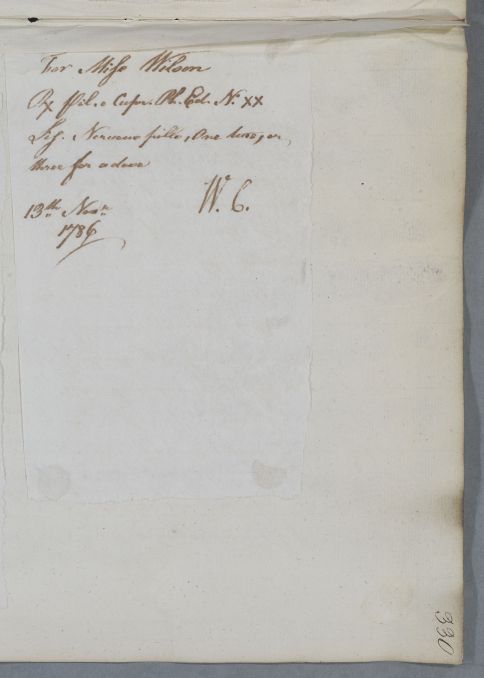 For Miss Wilson
℞ Pil. e Cupr. Ph. Ed. No. xx
Sig. Nervous pills, One two, or
three for a dose
13th. Novr.
1786
W. C.
330